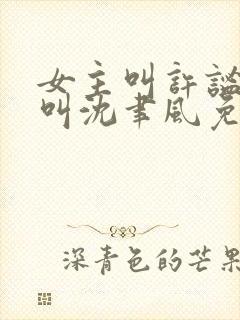 女主叫許謐
叫沈聿風免
深青色的芒果